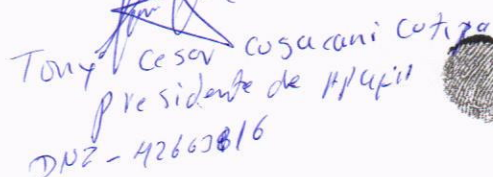 Tony Cesar Cusacani Cutipa
presidente de
DNI - 42663816